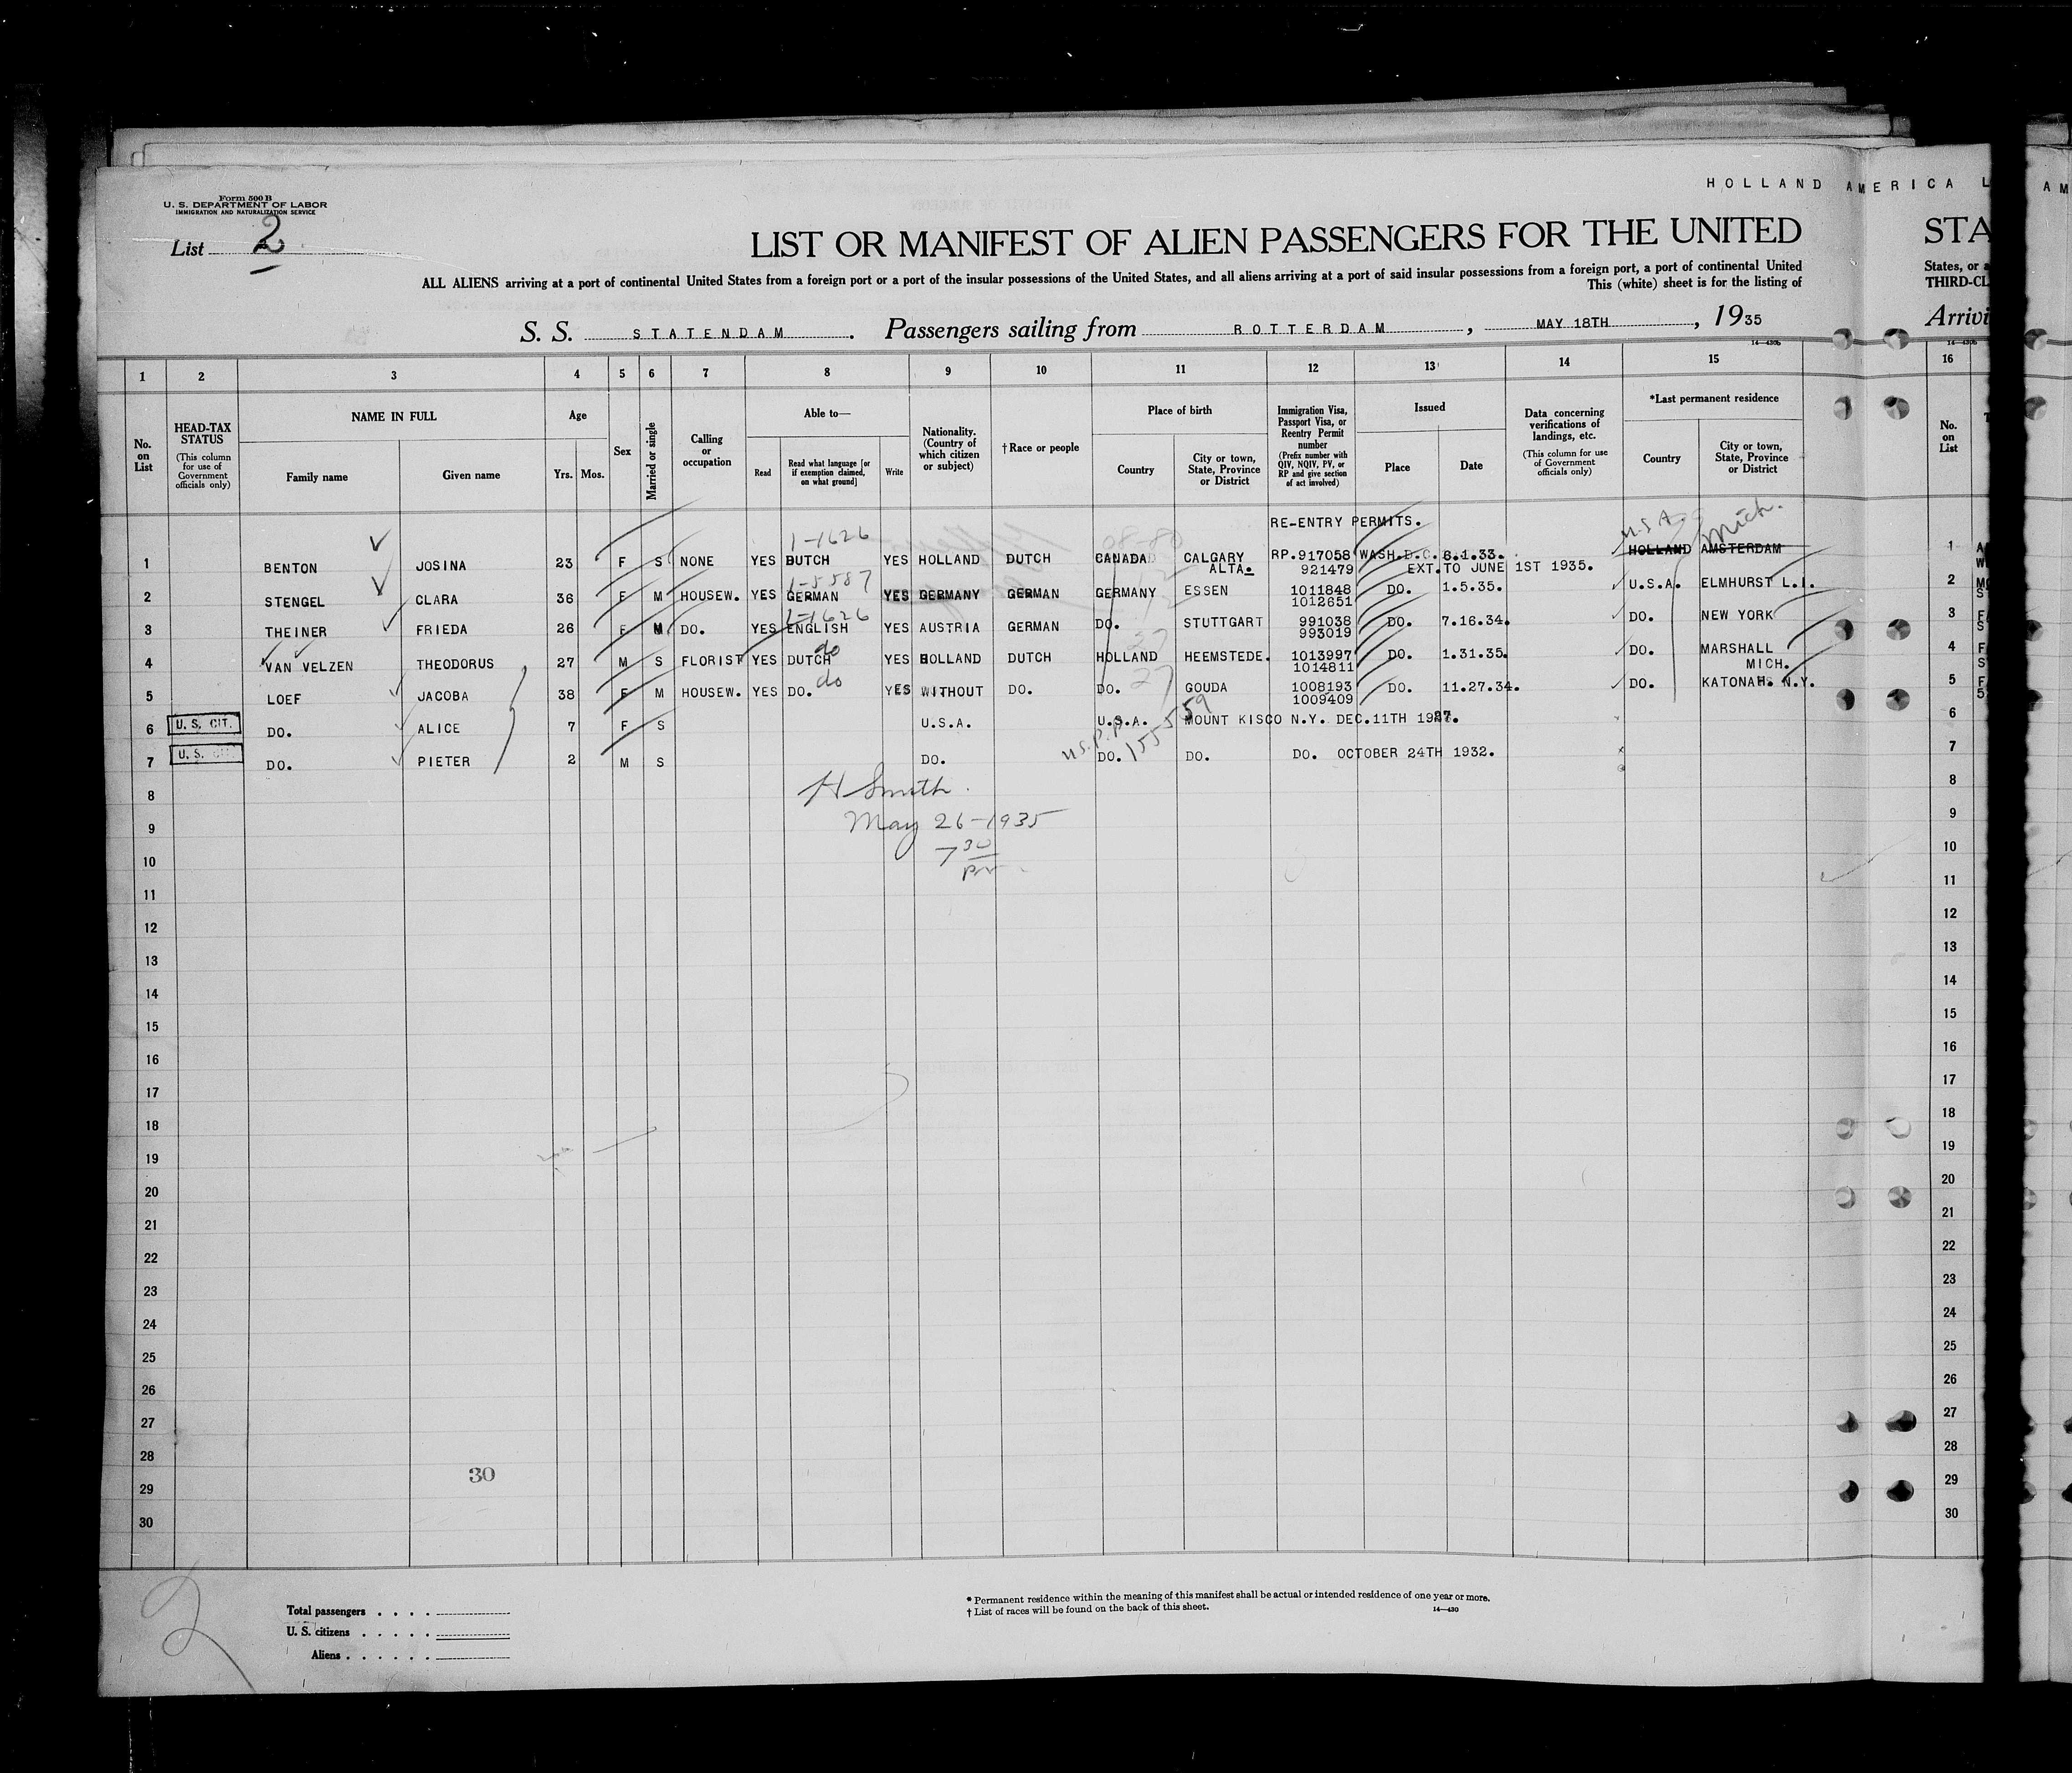 HOLLAND AMERICA L
AM
Form 500 B
U. S. DEPARTMENT OF LABOR
IMMIGRATION AND NATURALIZATION SERVICE
List 2
LIST OR MANIFEST OF ALIEN PASSENGERS FOR THE UNITED
STA
ALL ALIENS arriving at a port of continental United States from a foreign port or a port of the insular possessions of the United States, and all aliens arriving at a port of said insular possessions from a foreign port, a port of continental United
States, or a
This (white) sheet is for the listing of
THIRD-CL
S. S. STATENDAM. Passengers sailing from ROTTERDAM, MAY 18TH, 1935
Arrivi
14-430b
1 2 3 4 5 6 7 8 9 10 11 12 13 14 15 16
No. on List
HEAD-TAX STATUS (This column for use of Government officials only)
NAME IN FULL
Family name
Given name
Age
Yrs. Mos.
Sex
Married or single
Calling or occupation
Able to—
Read
Read what language [or if exemption claimed, on what ground]
Write
Nationality. (Country of which citizen or subject)
†Race or people
Place of birth
Country
City or town, State, Province or District
Immigration Visa, Passport Visa, or Reentry Permit number (Prefix number with QIV, NQIV, PV, or RP and give section of act involved)
Issued
Place
Date
Data concerning verifications of landings, etc. (This column for use of Government officials only)
*Last permanent residence
Country
City or town, State, Province or District
No. on List
RE-ENTRY PERMITS.
U.S.A. Mich.
1-1626
1 BENTON JOSINA 23 F S NONE YES DUTCH YES HOLLAND DUTCH CANADA CALGARY RP.917058 WASH.D.C. 8.1.33. HOLLAND AMSTERDAM 1
ALTA. 921479 EXT.TO JUNE 1ST 1935.
1-5587
2 STENGEL CLARA 36 F M HOUSEW. YES GERMAN YES GERMANY GERMAN GERMANY ESSEN 1011848 DO. 1.5.35. U.S.A. ELMHURST L.I. 2
1012651
1-1626
3 THEINER FRIEDA 26 F M DO. YES ENGLISH YES AUSTRIA GERMAN DO. STUTTGART 991038 DO. 7.16.34. DO. NEW YORK 3
993019
do
4 VAN VELZEN THEODORUS 27 M S FLORIST YES DUTCH YES HOLLAND DUTCH HOLLAND HEEMSTEDE. 1013997 DO. 1.31.35. DO. MARSHALL 4
1014811 MICH.
do
5 LOEF JACOBA 38 F M HOUSEW. YES DO. YES WITHOUT DO. DO. GOUDA 1008193 DO. 11.27.34. DO. KATONAH. N.Y. 5
1009409
6 U. S. CIT. DO. ALICE 7 F S U.S.A. U.S.A. MOUNT KISCO N.Y. DEC.11TH 1927. 6
U.S.P.P. 155559
7 U. S. CIT. DO. PIETER 2 M S DO. DO. DO. DO. OCTOBER 24TH 1932. 7
8 H Smith. 8
9 May 26-1935 9
10 7 30 10
pm
11 11
12 12
13 13
14 14
15 15
16 16
17 17
18 18
19 19
20 20
21 21
22 22
23 23
24 24
25 25
26 26
27 27
28 28
30
29 29
30 30
2
Total passengers . . . .
U. S. citizens . . . . .
Aliens . . . . . .
* Permanent residence within the meaning of this manifest shall be actual or intended residence of one year or more.
† List of races will be found on the back of this sheet.
14-430